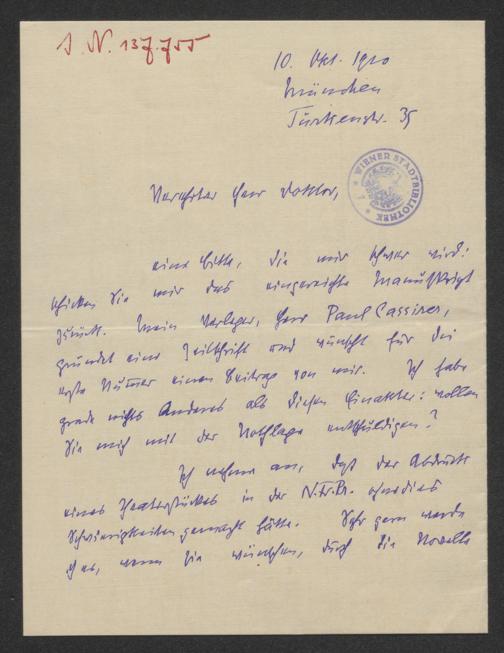 J. N. 137.755
10. Okt. 1910
München
Türkenstr. 35
WIENER STADTBIBLIOTHEK
Verehrter Herr Doktor,
eine Bitte, die mir schwer wird:
schicken Sie mir das eingereichte Manuskript
zurück. Mein Verleger, Herr Paul Cassirer,
gründet eine Zeitschrift und wünscht für die
erste Nummer einen Beitrag von mir. Ich habe
grade nichts Anderes als diesen Einakter: wollen
Sie mich mit der Nothlage entschuldigen?
Ich nehme an, daß der Abdruck
eines Theaterstückes in der N.Fr.Pr. ohnedies
Schwierigkeiten gemacht hätte. Sehr gern werde
ich es, wenn Sie wünschen, durch die Novelle